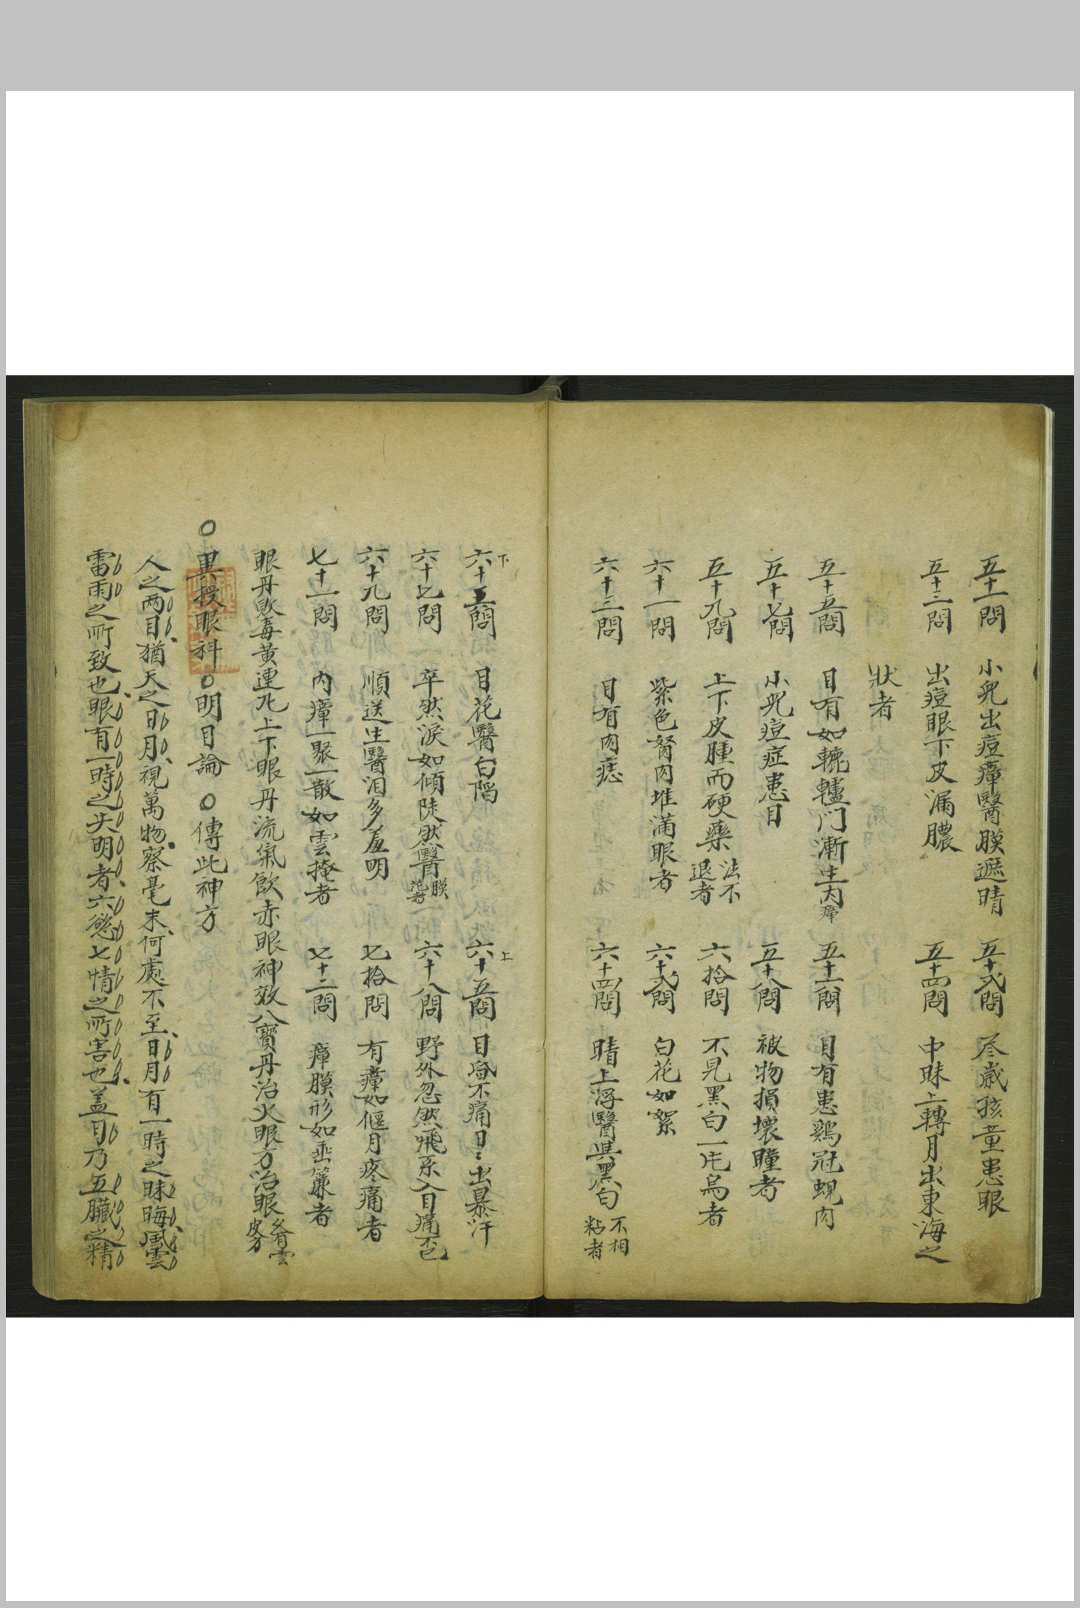 五十一問 小兒出痘瘴醫膜遮晴 五十弐問 尽歲孩童患眼
五十三問 出痘眼下皮漏膿 五十四問 中昧上轉月出東海之
狀者
五十五問 目有如轆轤門漸生肉瘴 五十六問 目有患鷄冠蜆肉
五十七問 小兒痘症患目 五十八問 被物損壞瞳者
五十九問 上下皮腫而硬藥法不退者 六拾問 不見黑白一片烏者
六十一問 紫色胬肉堆滿眼者 六十弐問 白花如絮
六十三問 目有肉痣 六十四問 晴上浮醫與黑白不相粘者
下 六十六問 目花醫白陷 上 六十五問 目昏不痛日々出暴汗
六十七問 卒然淚如傾陡然醫膜 六十八問 野外忽然飛系入目痛不已
六十九問 順送生醫泪多羞明 七拾問 有瘴如偃月疼痛者
七十一問 內瘴一聚一散如雲掩者 七十二問 瘴膜形如垂簾者
眼丹敗毒黃連 上下眼丹流氣飲赤眼神效八寶丹治火眼方治眼
○異授眼科○明目論 ○傳此神方
人之两目猶天之日月視萬物察毫末何處不至日月有一時之昧晦風雲
雷雨之所致也眼有一時之失明者六慾七情之所害也盖目乃五臟之精